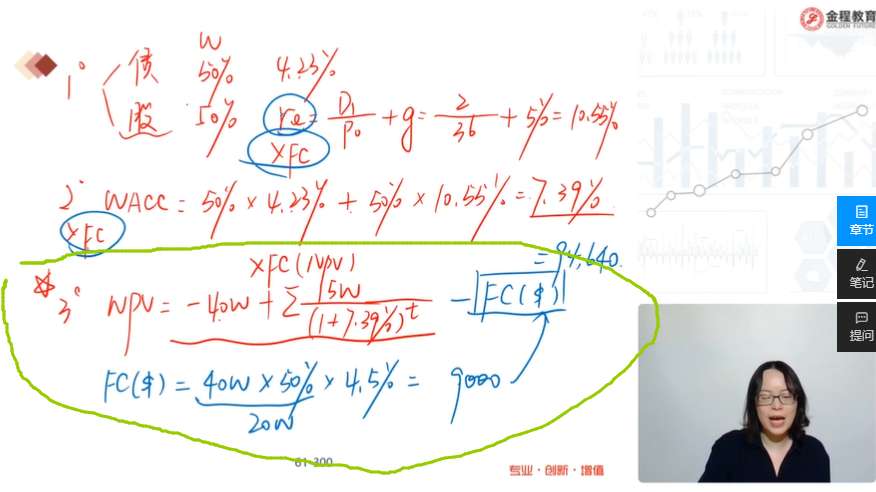 金程教育
GOLDEN FUTURE
W
1° 债 50% 4.23%
股 50% re = D1/P0 + g = 2/36 + 5% = 10.55%
XFC
2° WACC = 50% × 4.23% + 50% × 10.55% = 7.39%
XFC
XFC(NPV) = 94,640.
3° NPV = -40W + Σ 15W/(1+7.39%)^t - FC($)
FC($) = 40W × 50% × 4.5% = 9000
20W
61-300
专业·创新·增值
章节
笔记
提问